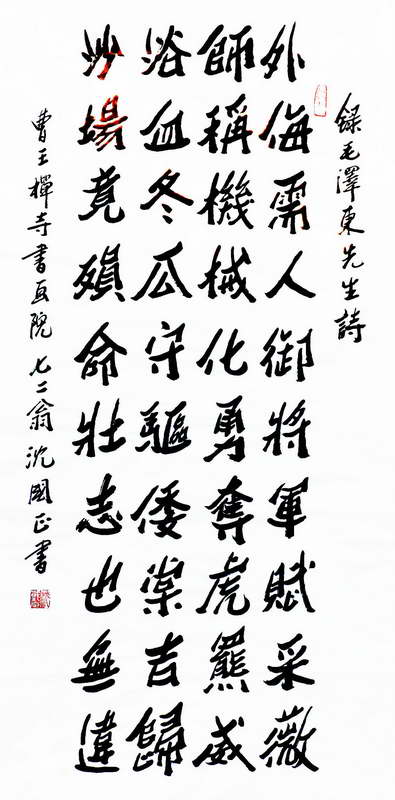 錄毛澤東先生詩
外侮需人御將軍賦采薇
師稱機械化勇奪虎羆威
浴血冬瓜守驅倭棠吉歸
沙場竟殞命壯志也無違
曹王禪寺書画院七二翁沈國正書